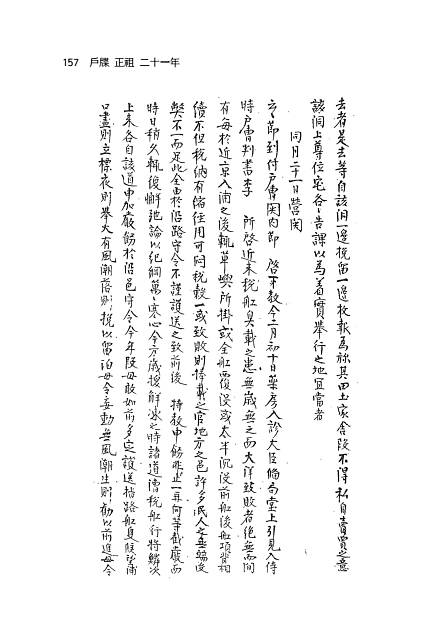 157 戶牒 正祖 二十一年
去者是去等自該洞一邊挽留一邊枚報爲旀其田土家舍段不得私自賣買之意
該洞上尊位宅各各告課以爲着實擧行之地宜當者
同月二十一日營關
云云節到付戶曹關內節 啓下敎今二月初十日藥房入診大臣備局堂上引見入侍
時戶曹判書李 所啓近來稅船臭載之患無歲無之而大洋致敗者絶無而間
有每於近京入浦之後輒草嶼所掛或全船覆沒或太半沉沒前船後船項背相
續不但稅納有縮任用可悶稅穀一或致敗則倖載之官地方之邑許多民人之無端
弊不一而足此全由於沿路守令不謹護送之致前後 特敎申飭非止一再何等截嚴而
時日稍久輒復懈弛論以紀綱萬萬寒心今方歲換解冰之時諸道漕稅船行將鱗次
上來各自該道申加嚴飭於沿邑守令今年段毋敢如前多定護送指路船臭
口晝則立標夜則擧火有風潮落則挽以留泊毋令妄動無風潮生則勸以前進毋令